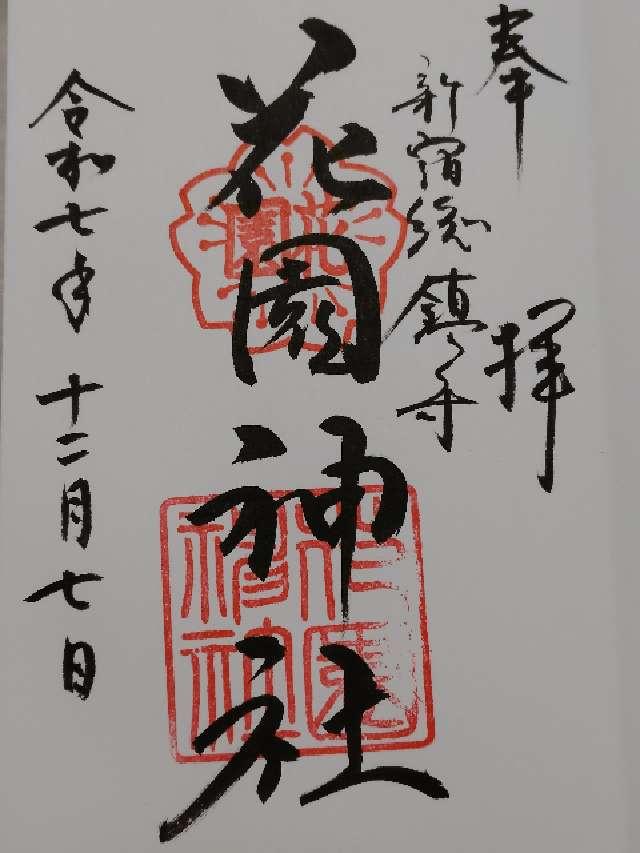 奉拝
新宿総鎮守
花園神社
令和七年十二月七日
花園
花園神社